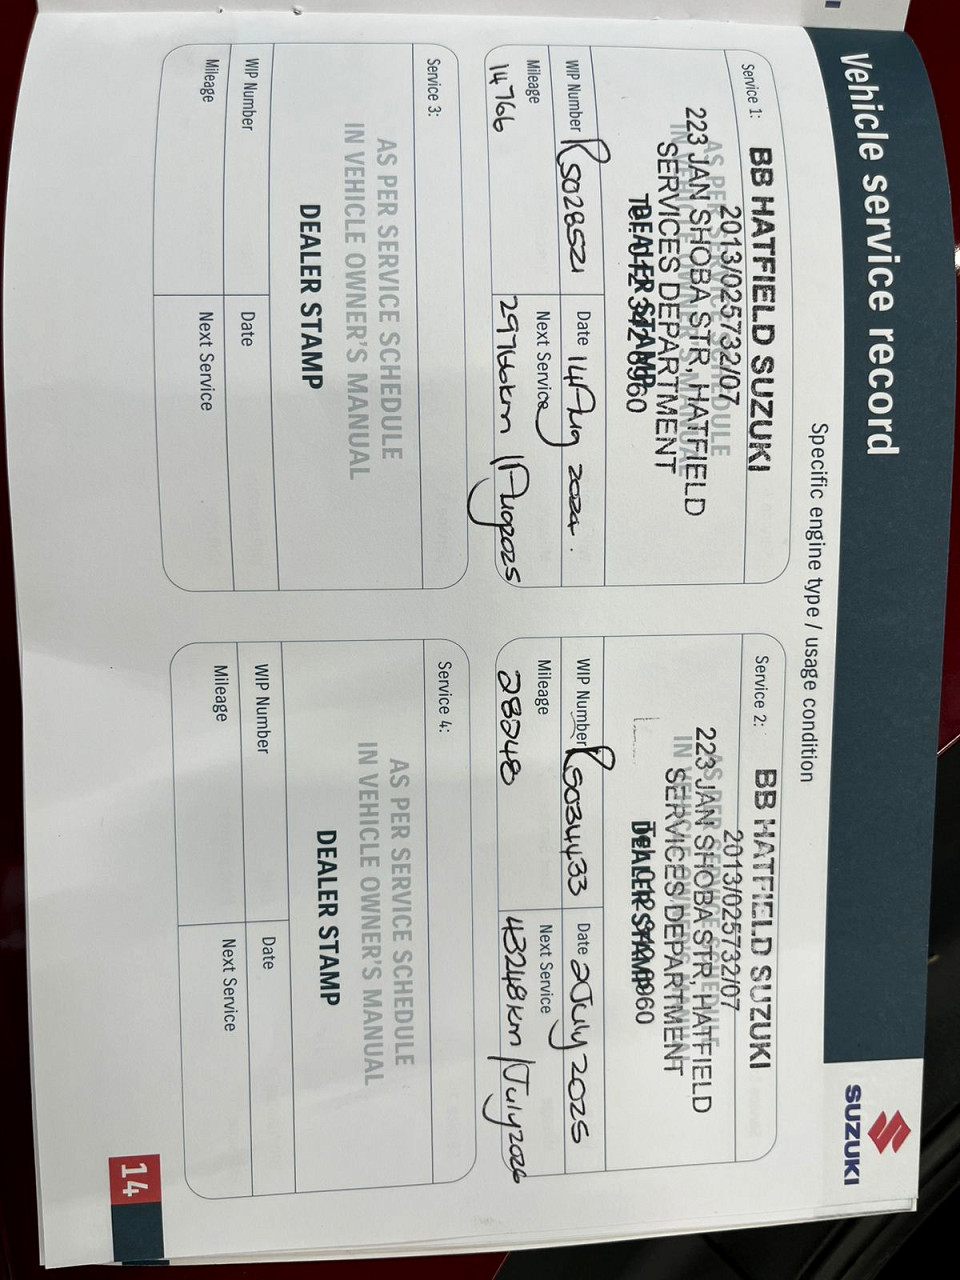 Vehicle service record
SUZUKI
Specific engine type / usage condition
Service 1:
BB HATFIELD SUZUKI
2013/025732/07
AS PER SERVICE SCHEDULE
223 JAN SHOBA STR, HATFIELD
IN VEHICLE OWNER'S MANUAL
SERVICES DEPARTMENT
DEALER STAMP
Tel: 012 342 6960
WIP Number RS028521
Date 14 Aug 2024.
Mileage 14766
Next Service 29766km / Aug 2025
Service 2:
BB HATFIELD SUZUKI
2013/025732/07
AS PER SERVICE SCHEDULE
223 JAN SHOBA STR, HATFIELD
IN VEHICLE OWNER'S MANUAL
SERVICES DEPARTMENT
DEALER STAMP
WIP Number RS034433
Date 2 July 2025
Mileage 28248
Next Service 43248km / July 2026
Service 3:
AS PER SERVICE SCHEDULE
IN VEHICLE OWNER'S MANUAL
DEALER STAMP
WIP Number
Date
Mileage
Next Service
Service 4:
AS PER SERVICE SCHEDULE
IN VEHICLE OWNER'S MANUAL
DEALER STAMP
WIP Number
Date
Mileage
Next Service
14